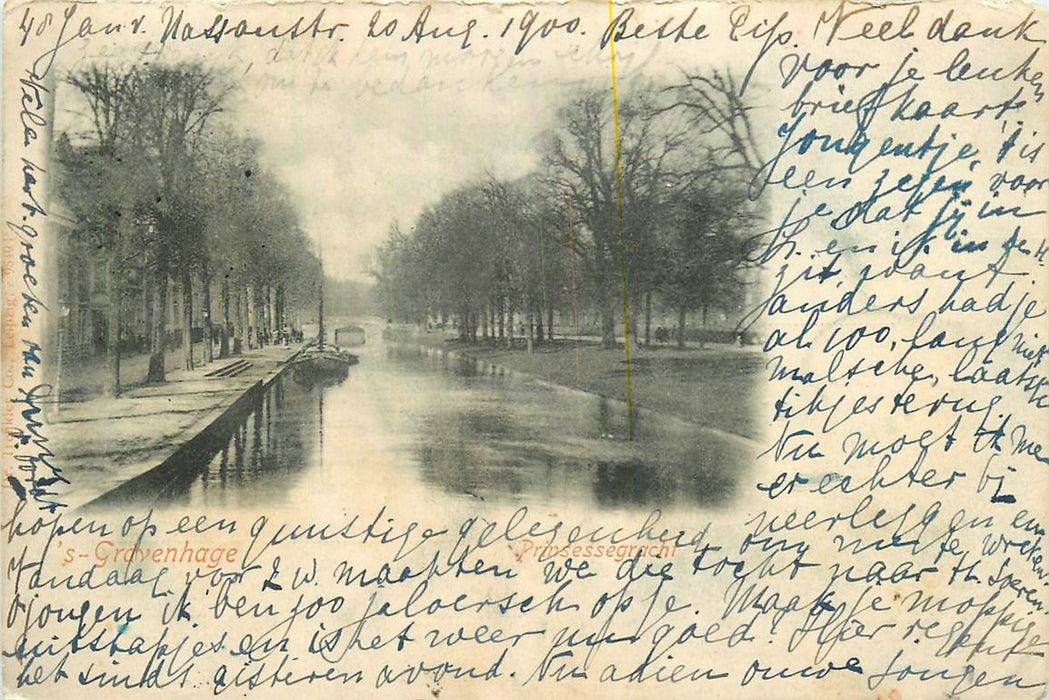 48 Jan v. Nassaustr. 20 Aug. 1900. Beste Eip. Veel dank
voor je leuken
briefkaart
Jongentje, 't is
een zegen voor
je dat jij in
H. en ik in de H.
zit, want
anders had je
al 100, lang niet
malsche, laatste
tikjes terug.
Nu mogt ik me
er echter bij
neerleggen en
hopen op een gunstige gelegenheid, om mijn te wreken.
Vandaag voor 2 w. maakten we die tocht naar H. Sparen.
Ojongen ik ben zoo jaloersch op je. Maak je moppige
uitstapjes en is het weer nu goed? Hier regent
het sinds gisteren avond. Nu adieu ouwe jongen
Vele hart. groeten van
's-Gravenhage
Prinsessegracht
Dr. Trenkler Co., Leipzig.